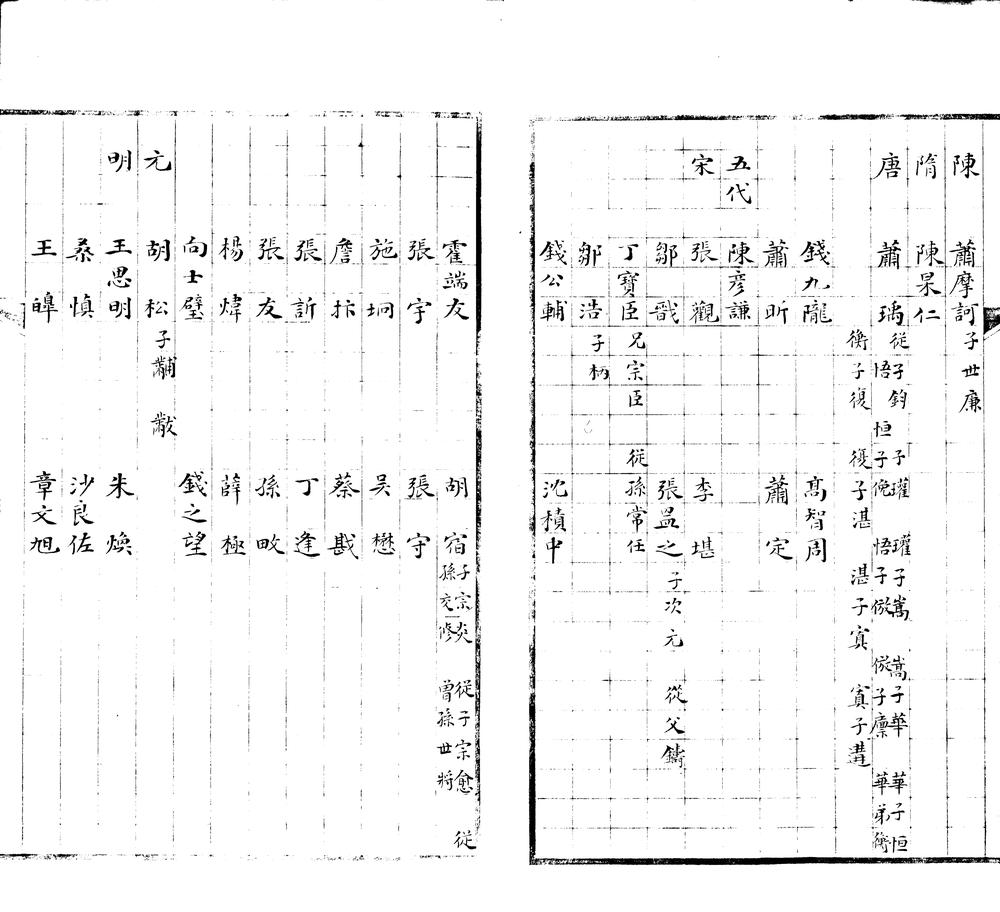 陳　蕭摩訶子世廉
隋　陳杲仁
唐　蕭　瑀從子鈞　子瓘　瓘子嵩　嵩子華　華子恒
悟　恒子俛　悟子倣　倣子廩　華弟衡
衡子復　復子湛　湛子寘　寘子遘
錢九隴　高智周
蕭　昕　蕭　定
五代　陳彥謙
宋　張　觀　李　堪
鄒　戩　張昷之子次元　從父鑄
丁寶臣兄宗臣　從孫常任
鄒　浩子柄
錢公輔　沈積中
霍端友　胡　宿子宗炎　從子宗愈　從
孫交修　曾孫世將
張　宇　張　守
施　坰　吳　懋
詹　抃　蔡　戡
張　訢　丁　逢
張　友　孫　畋
楊　煒　薛　極
向士璧　錢之望
元　胡　松子黼　黻
明　王思明　朱　煥
桑　慎　沙良佐
王　皞　章文旭